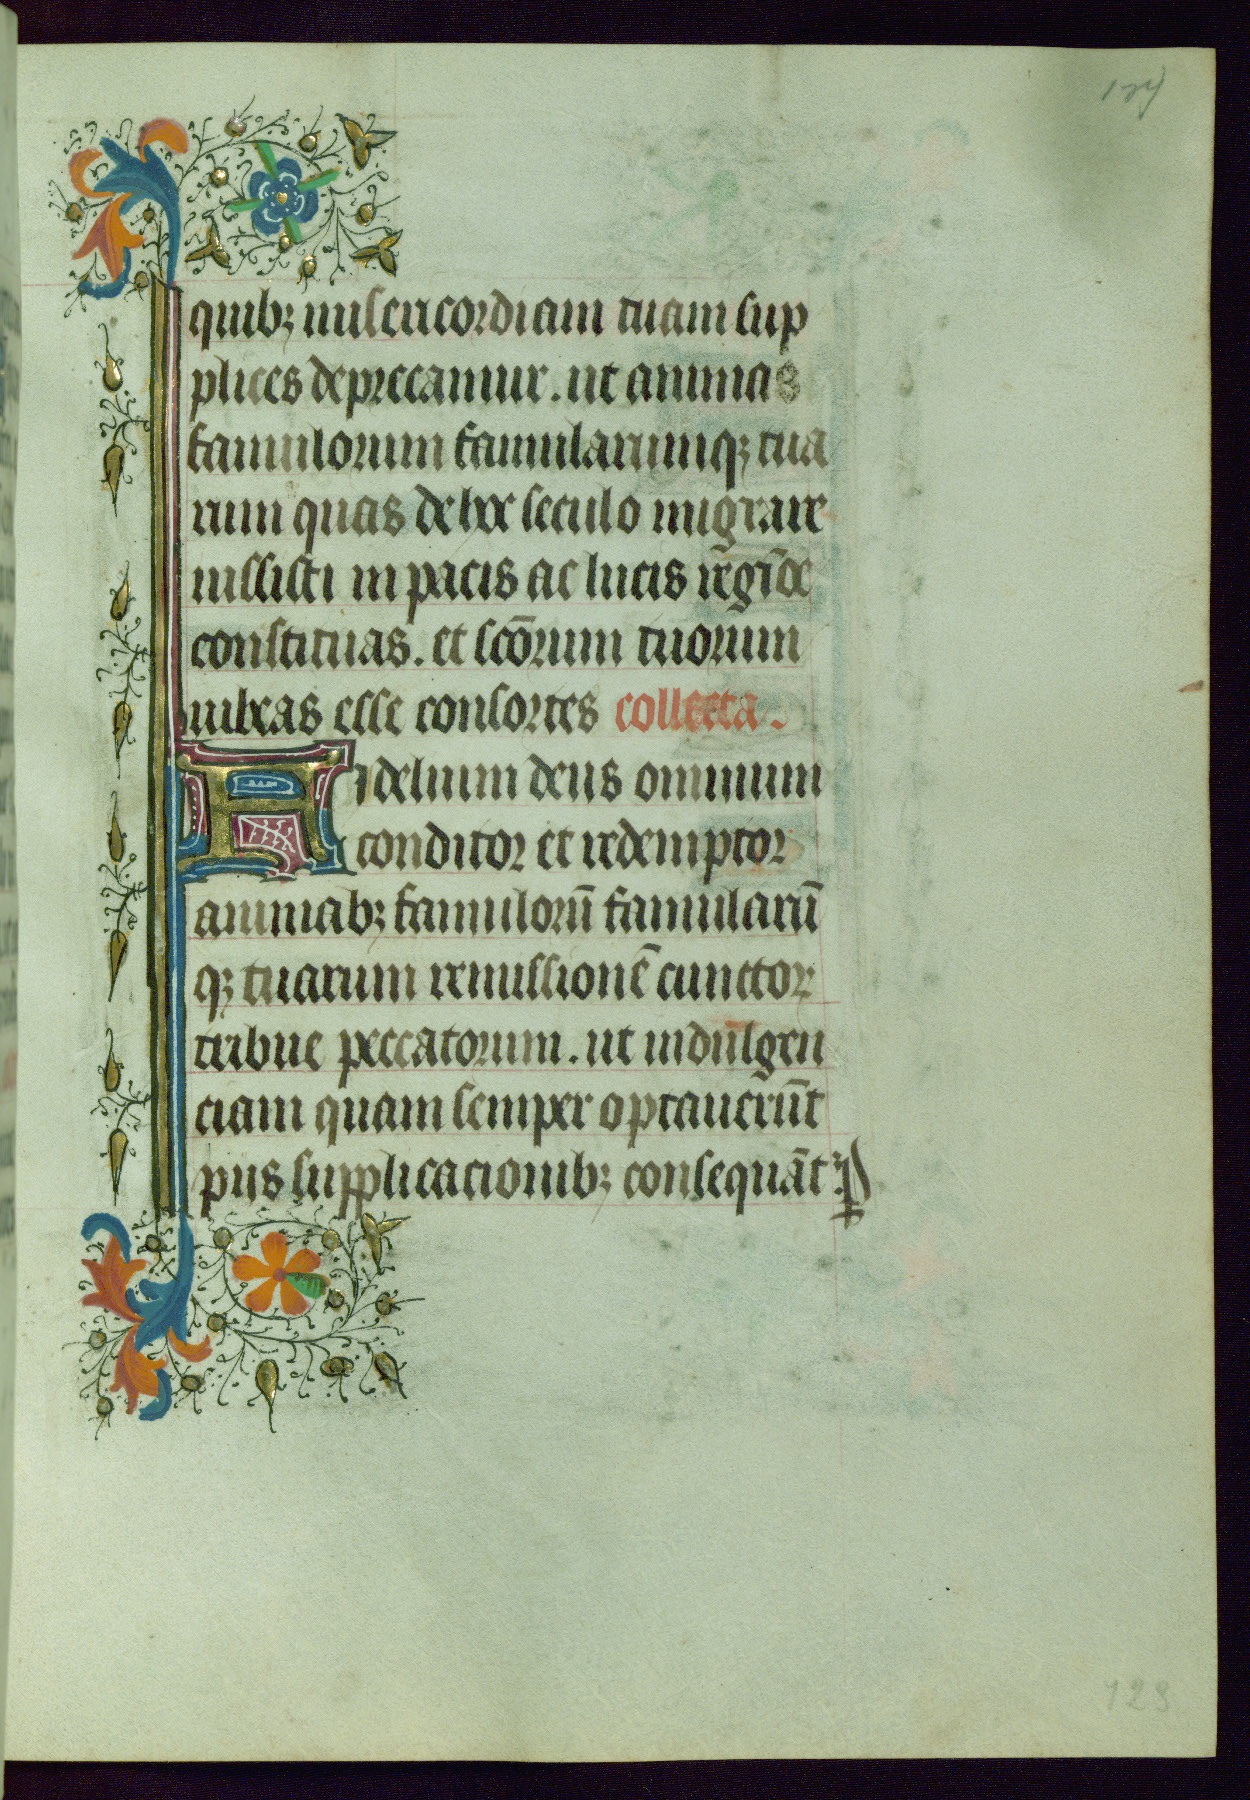 177
quibꝫ misericordiam tuam sup
plices deprecamur. ut animas
famulorum famularumqꝫ tua
rum quas de hoc seculo migrare
iussisti in pacis ac lucis regiōe
constituas. et scōrum tuorum
iubeas esse consortes collecta.
Fidelium deus omnium
conditor et redemptor
animabꝫ famulorū famularū
qꝫ tuarum remissionē cunctor
tribue peccatorum. ut indulgen
ciam quam semper optauerūt
pijs supplicacionibꝫ consequāt᷑ p
123